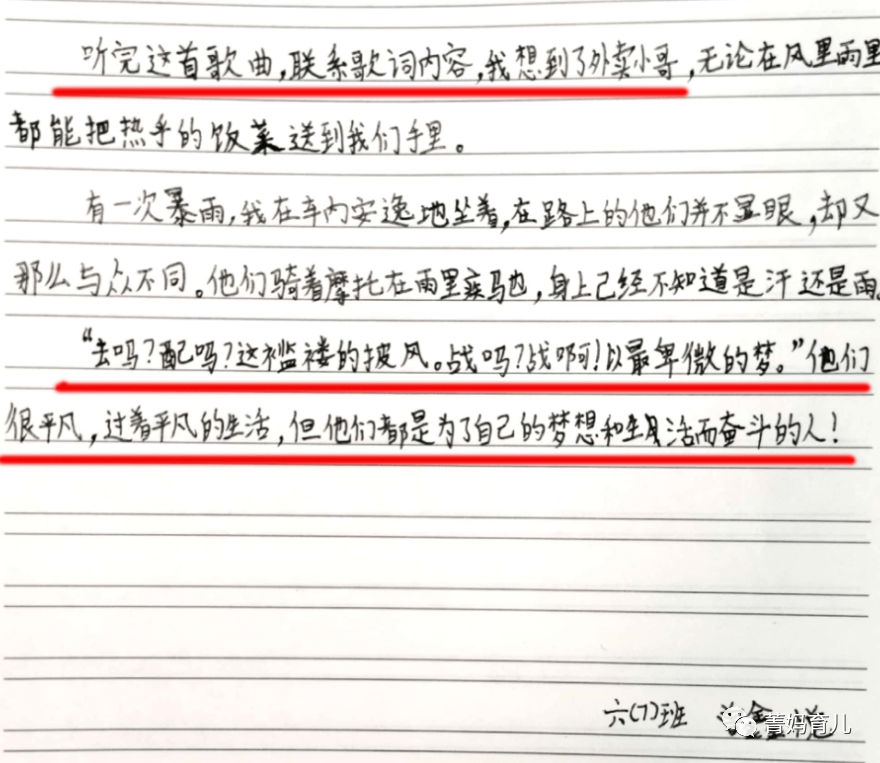 听完这首歌曲,联系歌词内容,我想到了外卖小哥,无论在风里雨里
都能把热乎的饭菜送到我们手里。
有一次暴雨,我在车内安逸地坐着,在路上的他们并不显眼,却又
那么与众不同。他们骑着摩托在雨里疾驰,身上已经不知道是汗还是雨。
“去吗?配吗?这褴褛的披风。战吗?战啊!以最卑微的梦。”他们
很平凡,过着平凡的生活,但他们都是为了自己的梦想和生活而奋斗的人!
六(7)班 鑫悦
菁妈育儿